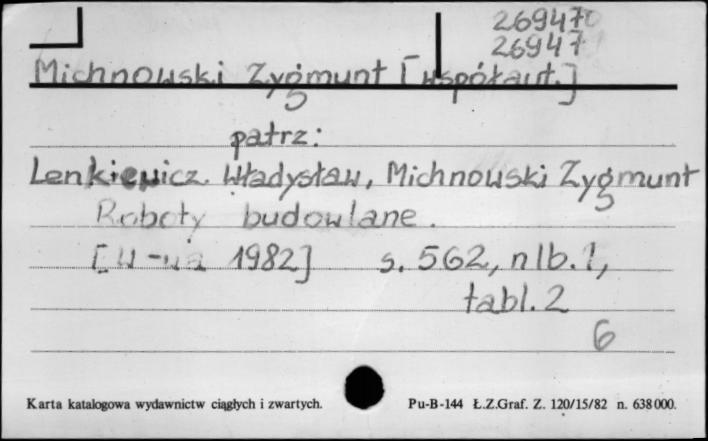 269470
26947
Michnowski Zygmunt [współaut.]
patrz:
Lenkiewicz Władysław, Michnowski Zygmunt
Roboty budowlane.
[W-wa 1982] s. 562, nlb. 1,
tabl. 2
6
Karta katalogowa wydawnictw ciągłych i zwartych. Pu-B-144 Ł.Z.Graf. Z. 120/15/82 n. 638000.